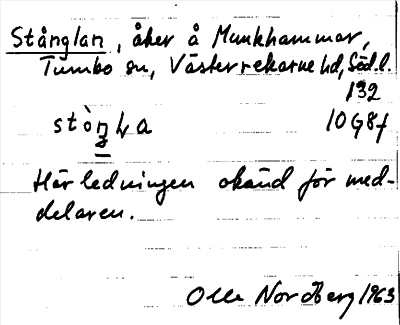 Stånglan, åker å Munkhammar,
Tumbo sn, Västerrekarne hd, Södl.
132
stòŋ̳ɫa 10G8f
Härledningen okänd för med-
delaren.
Olle Nordberg 1963